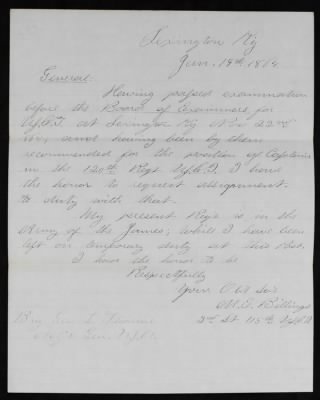 Lexington Ky
Jan. 19th, 1865
General:
Having passed examination
before the Board of Examiners for
U.S.C.T. at Lexington Ky Nov 22nd
and having been by them
recommended for the position of Captain
in the 120th Regt U.S.C.T, I have
the honor to request assignment
to duty with that.
My present Reg't is in the
Army of the James, while I have been
left on temporary duty at this Post.
I have the honor to be
Respectfully
Your Obt Svt
M.D. Billings
2nd Lt 115th U.S.C.T.
Brig Gen L. Thomas
Adj't Gen. U.S.A.